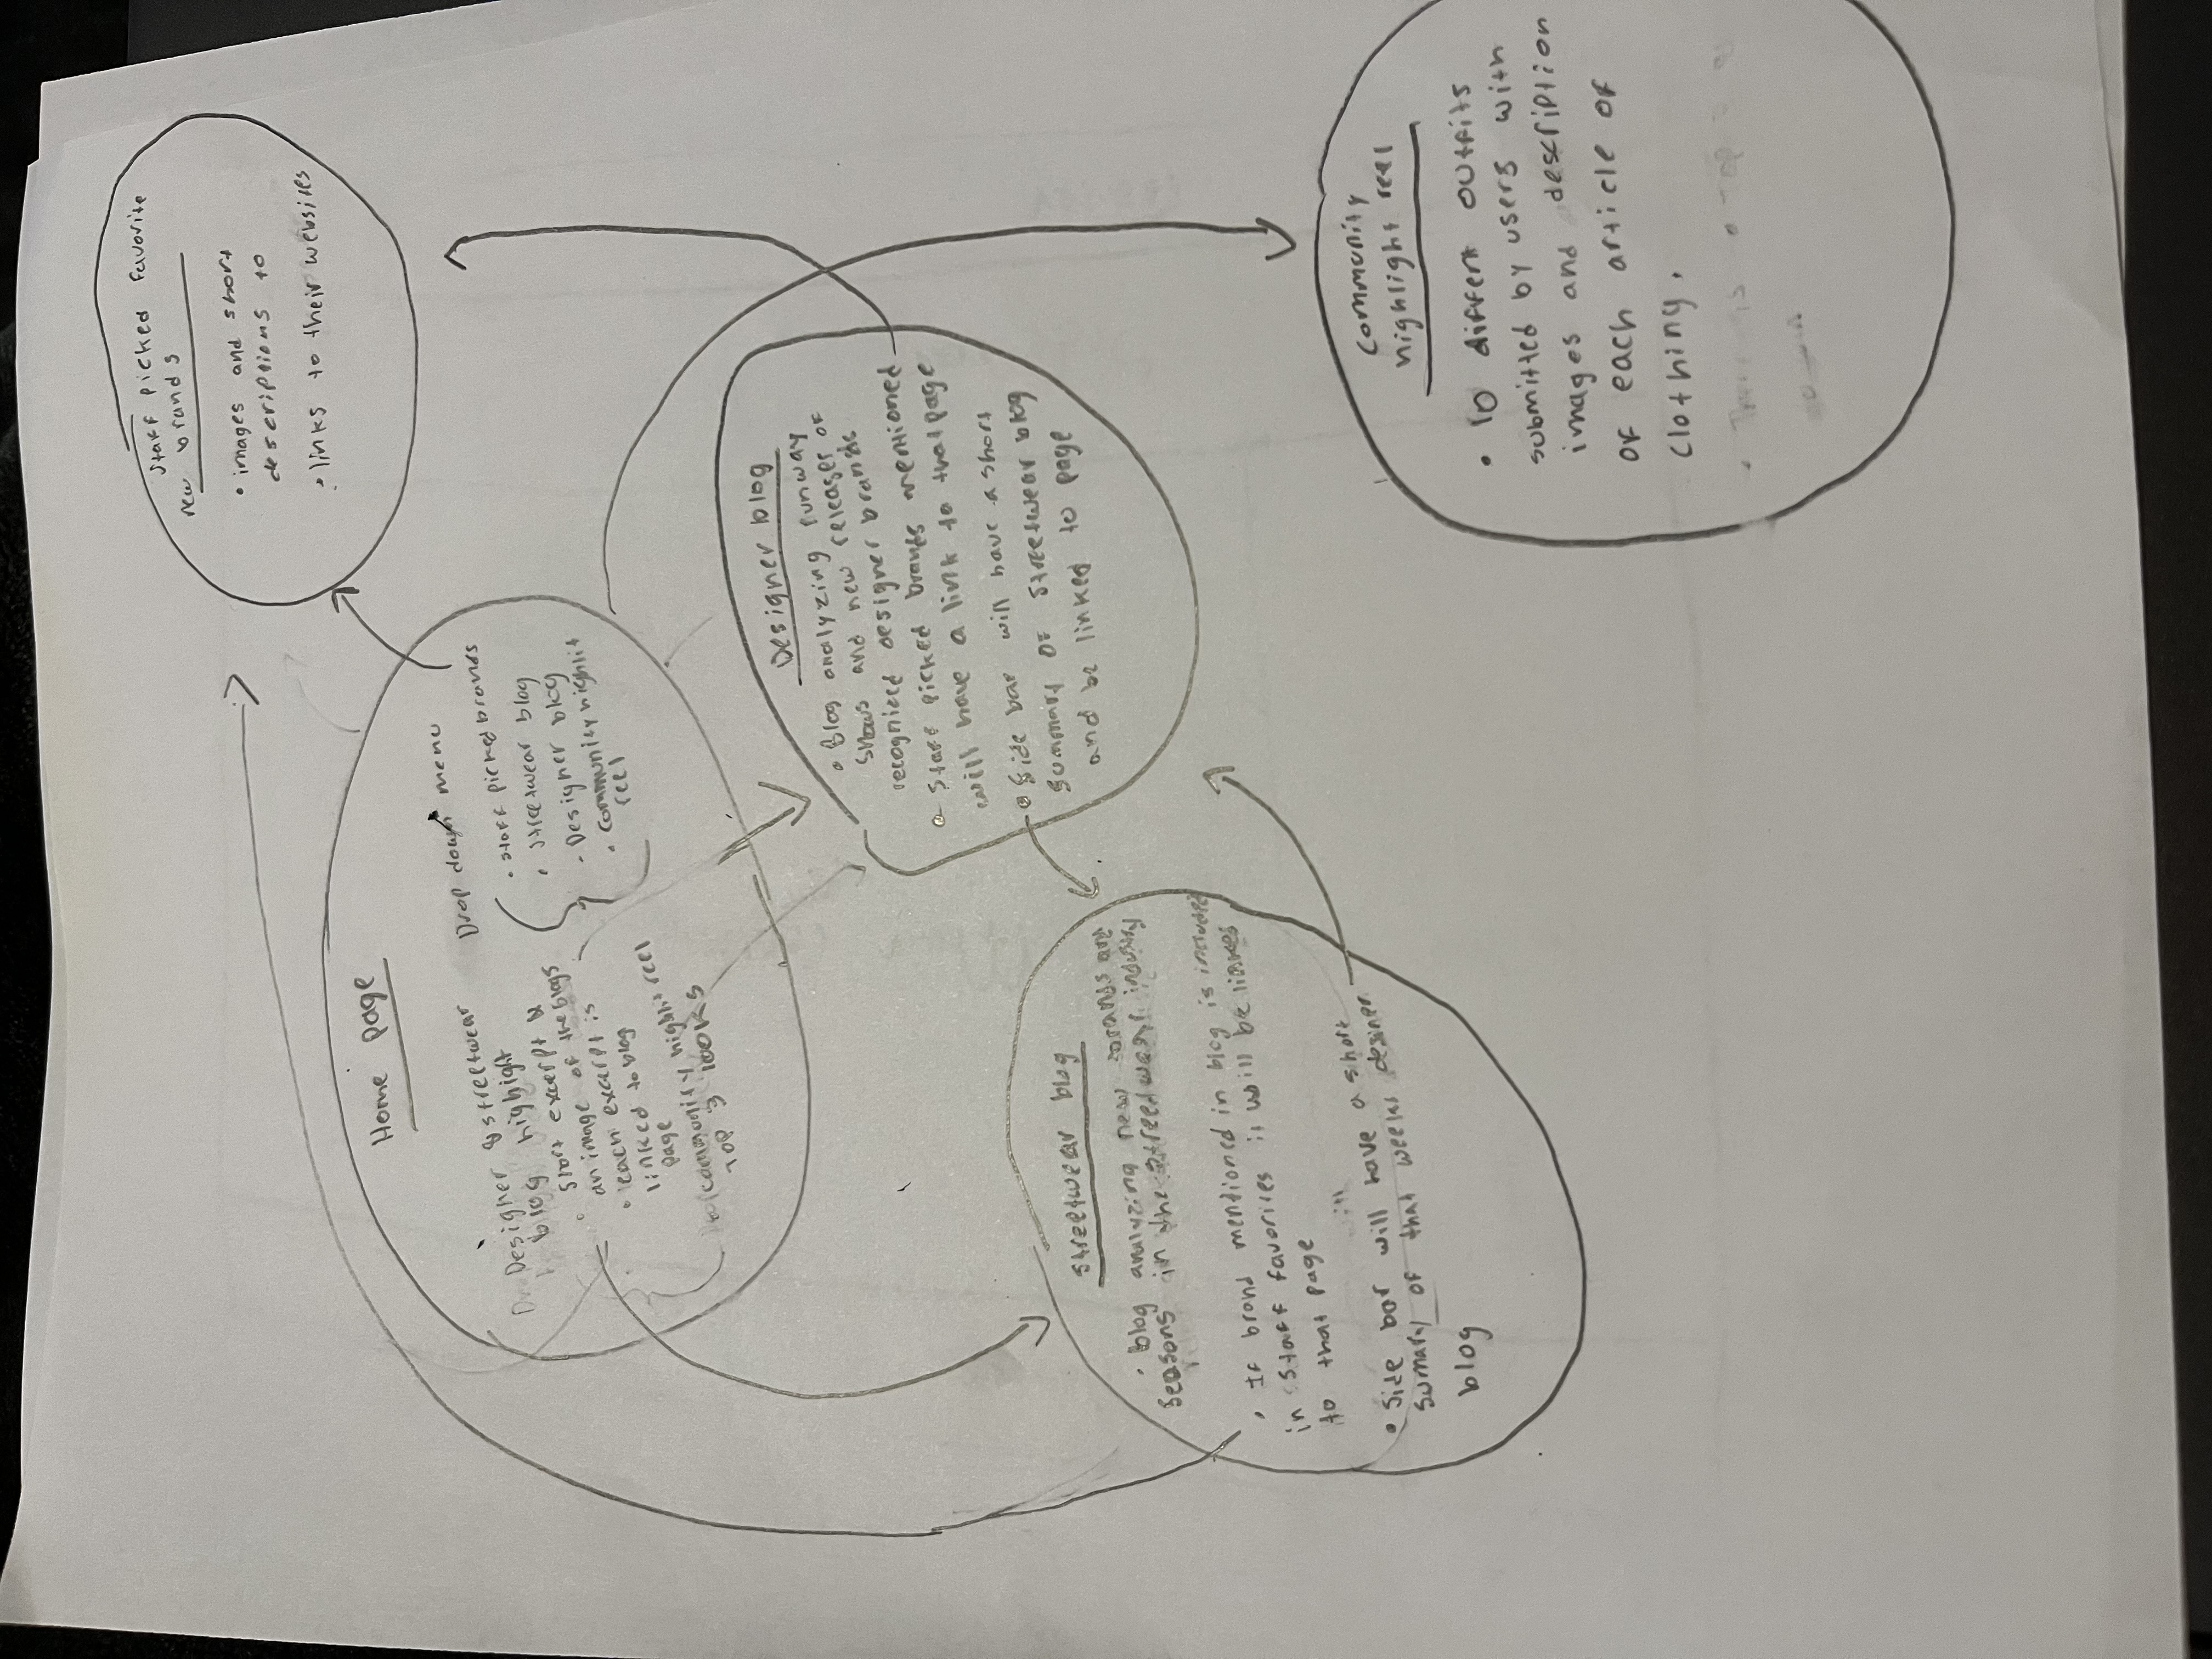 Staff picked favorite
new brands
• images and short
descriptions to
• links to their websites
Home page
Designer & streetwear
blog highight
• Short excerpt &
an image of the blogs
• each excerpt is
linked to blog
page
community highlit reel
Top 3 looks
Drop down menu
• staff picked brands
• Streetwear blog
- Designer blog
• Community highlit
reel
Designer blog
• Blog analyzing runway
shows and new releases of
recognized designer brands
• Staff picked brands mentioned
will have a link to that page
• Side bar will have a short
summary of streetwear blog
and be linked to page
Streetwear blog
• Blog analyzing new brands and
seasons in the streetwear industry
• If brand mentioned in blog is included
in staff favorites it will be linked
to that page
will
• Side bar will have a short
sumary of that weeks desiner
blog
Community
highlight reel
• 10 differnt outfits
submitted by users with
images and description
of each article of
clothing.